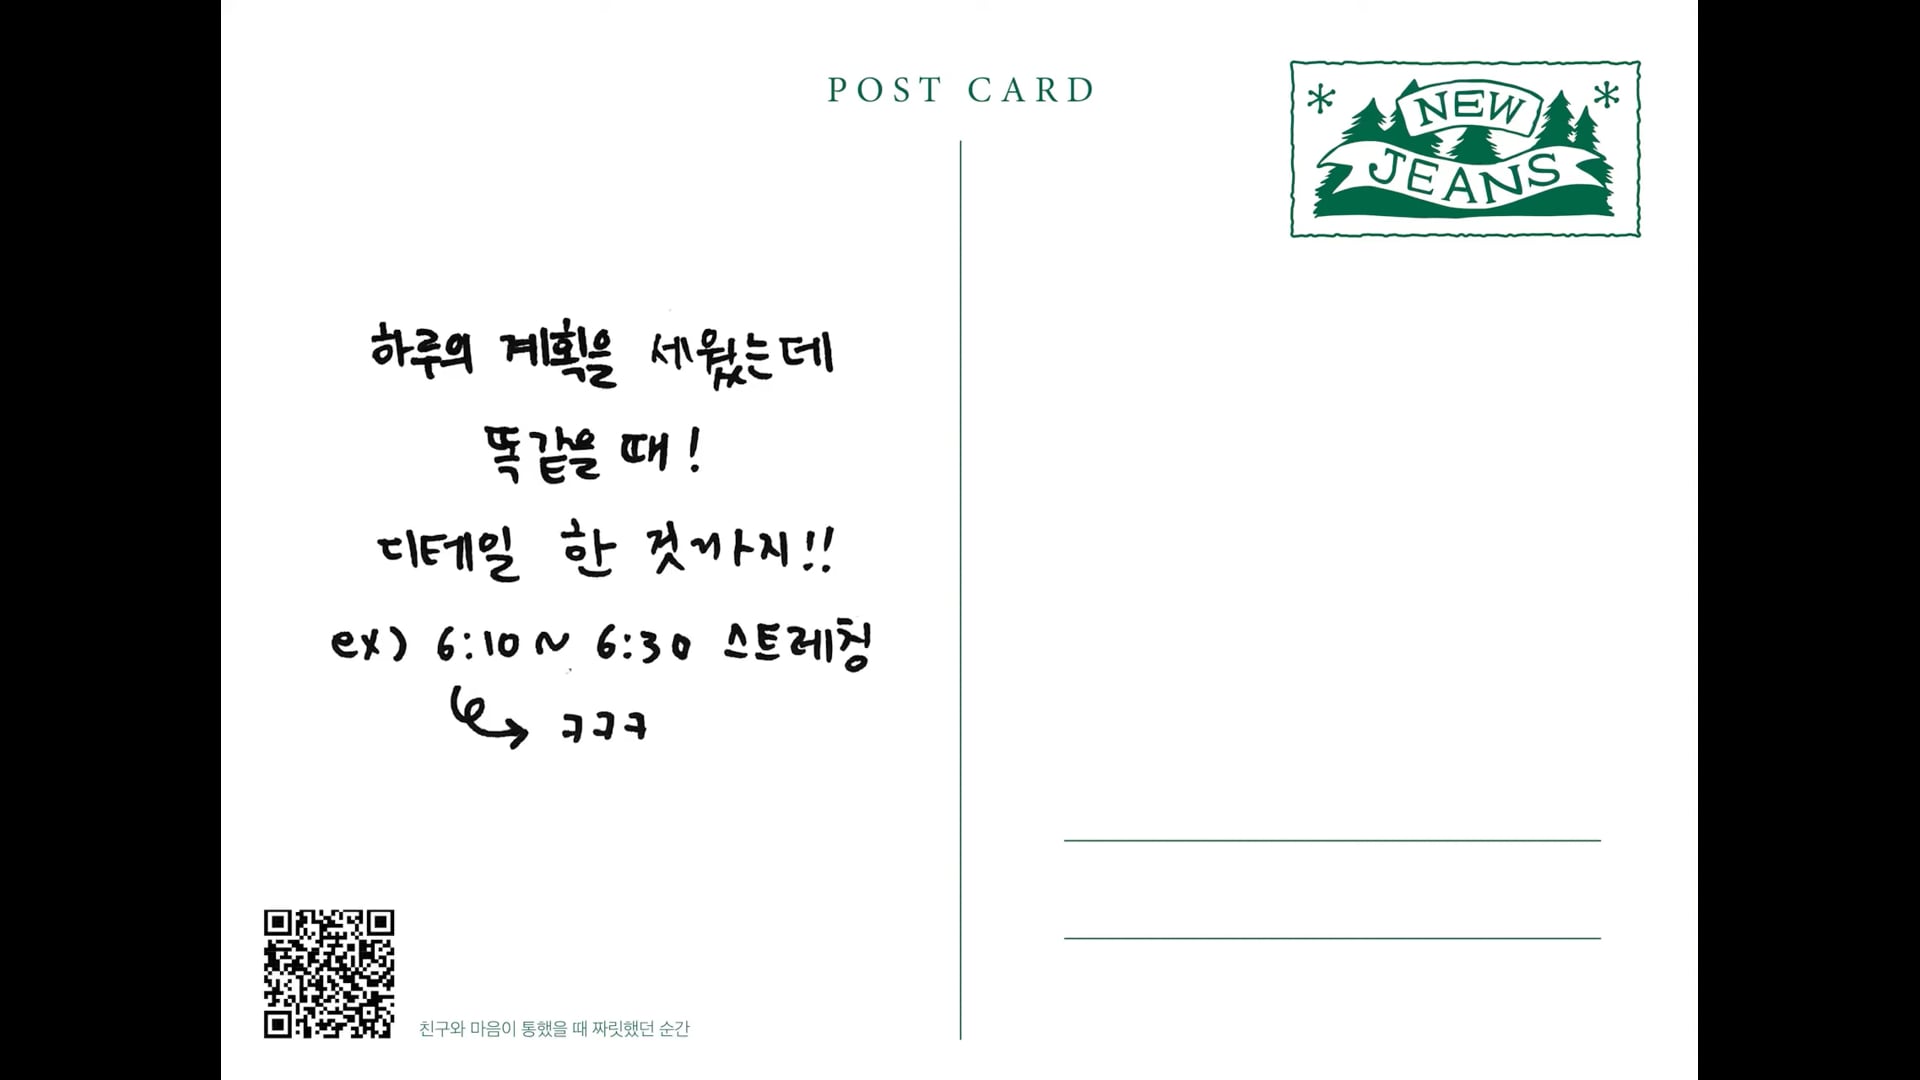 POST CARD
NEW
JEANS
하루의 계획을 세웠는데
똑같을 때!
디테일 한 것까지!!
ex) 6:10 ~ 6:30 스트레칭
ㅋㅋㅋ
친구와 마음이 통했을 때 짜릿했던 순간